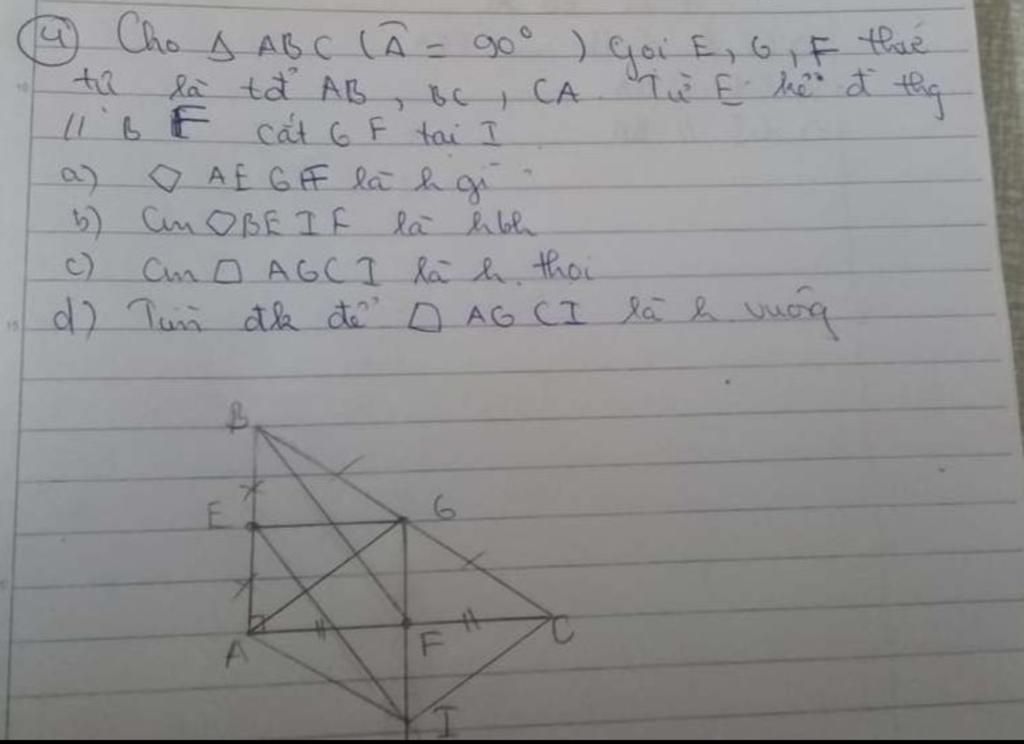 ④ Cho Δ ABC (Â = 90°) Gọi E, G, F thứ
tự là tđ AB, BC, CA. Từ E kẻ đ thg
// B F cắt G F tại I
a) ◇ AEGF là h gì
b) Cm ◇BEIF là hbh
c) Cm □ AGCI là h. thoi
d) Tìm đk để □ AGCI là h vuông
B
E G
A F C
I